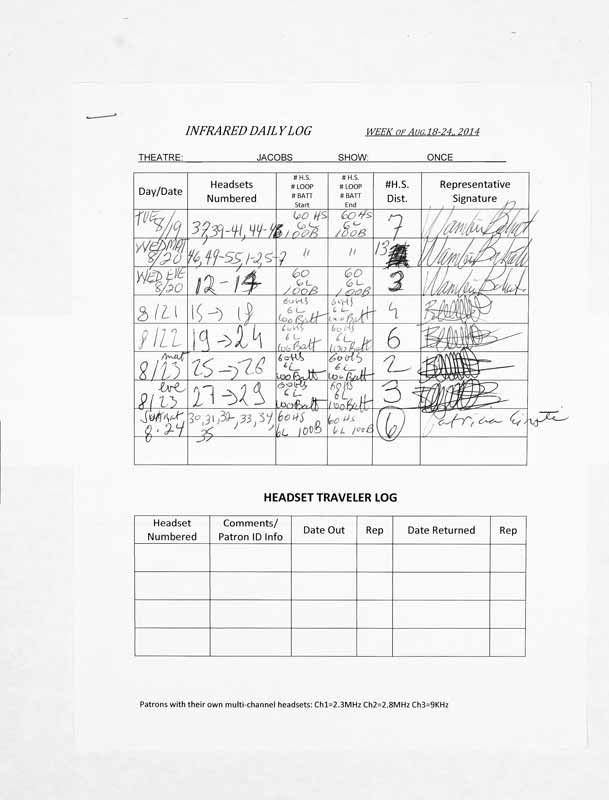 INFRARED DAILY LOG WEEK OF AUG.18-24, 2014
THEATRE: JACOBS SHOW: ONCE
Day/Date Headsets Numbered # H.S. # LOOP # BATT Start # H.S. # LOOP # BATT End #H.S. Dist. Representative Signature
TUE 8/19 37,39-41,44- 60 HS 6L 100B 60 HS 6L 100B 7
WED MAT 8/20 46,49-55,1-2,5-7 " " 13
WED EVE 8/20 12-14 60 6L 100B 60 6L 100B 3
8/21 15→18 60HS 6L 100Batt 60HS 6L 100Batt 4
8/22 19→24 60HS 6L 100Batt 60HS 6L 100Batt 6
mat 8/23 25→26 60HS 6L 100Batt 60HS 6L 100Batt 2
eve 8/23 27→29 60HS 6L 100Batt 60HS 6L 100Batt 3
Sun mat 8.24 30,31,32,33,34, 35 60HS 6L 100B 60HS 6L 100B 6 Patricia
HEADSET TRAVELER LOG
Headset Numbered Comments/ Patron ID Info Date Out Rep Date Returned Rep
Patrons with their own multi-channel headsets: Ch1=2.3MHz Ch2=2.8MHz Ch3=9KHz